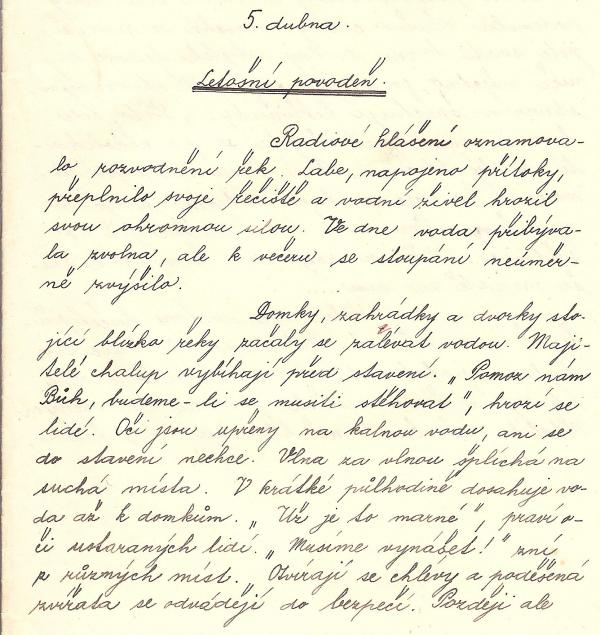 5. dubna.
Letošní povodeň.
Radiové hlášení oznamova-
lo rozvodnění řek. Labe, napojeno přítoky,
přeplnilo svoje řečiště a vodní živel hrozil
svou ohromnou silou. Ve dne voda přibýva-
la zvolna, ale k večeru se stoupání neúměr-
ně zvýšilo.
Domky, zahrádky a dvorky sto-
jící blízko řeky začaly se zalévat vodou. Maji-
telé chalup vybíhají před stavení. „Pomoz nám
Bůh, budeme-li se musiti stěhovat", hrozí se
lidé. Oči jsou upřeny na kalnou vodu, ani se
do stavení nechce. Vlna za vlnou šplíchá na
suchá místa. V krátké půlhodině dosahuje vo-
da až k domkům. „Už je to marné", praví o-
či ustaraných lidí. „Musíme vynášet!" zní
z různých míst. Otvírají se chlévy a poděšená
zvířata se odvádějí do bezpečí. Později ale